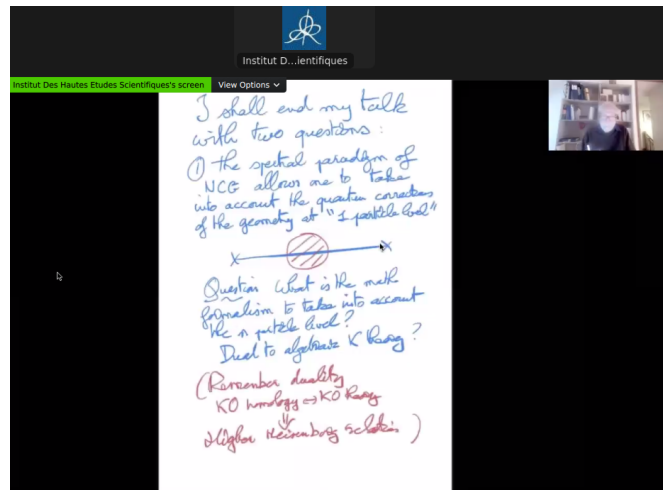 Institut D...ientifiques
Institut Des Hautes Etudes Scientifiques's screen
View Options
I shall end my talk
with two questions :
① the spectral paradigm of
NCG allows one to take
into account the quantum corrections
of the geometry at "1 particle level"
Question What is the math
formalism to take into account
the n particle level?
Dual to algebraic K theory?
(Remember duality
KO homology ↔ KO theory
⇓
Higher Heisenberg relations )